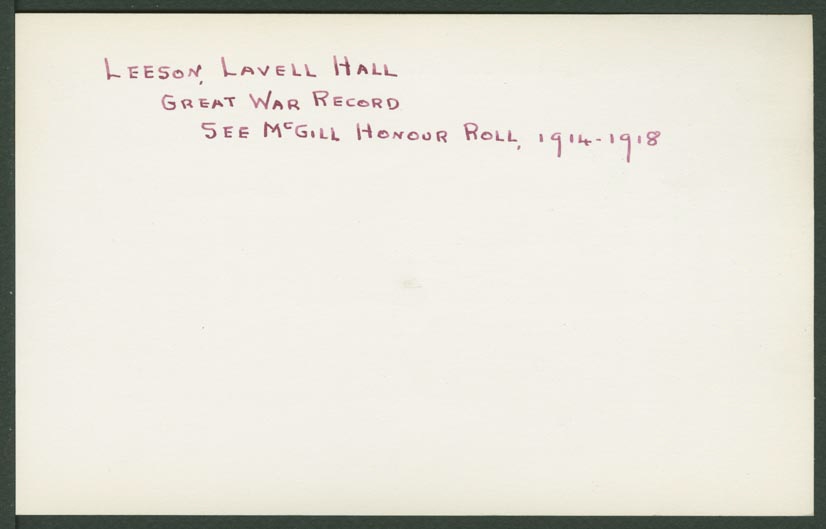 LEESON, LAVELL HALL
GREAT WAR RECORD
SEE McGILL HONOUR ROLL, 1914-1918